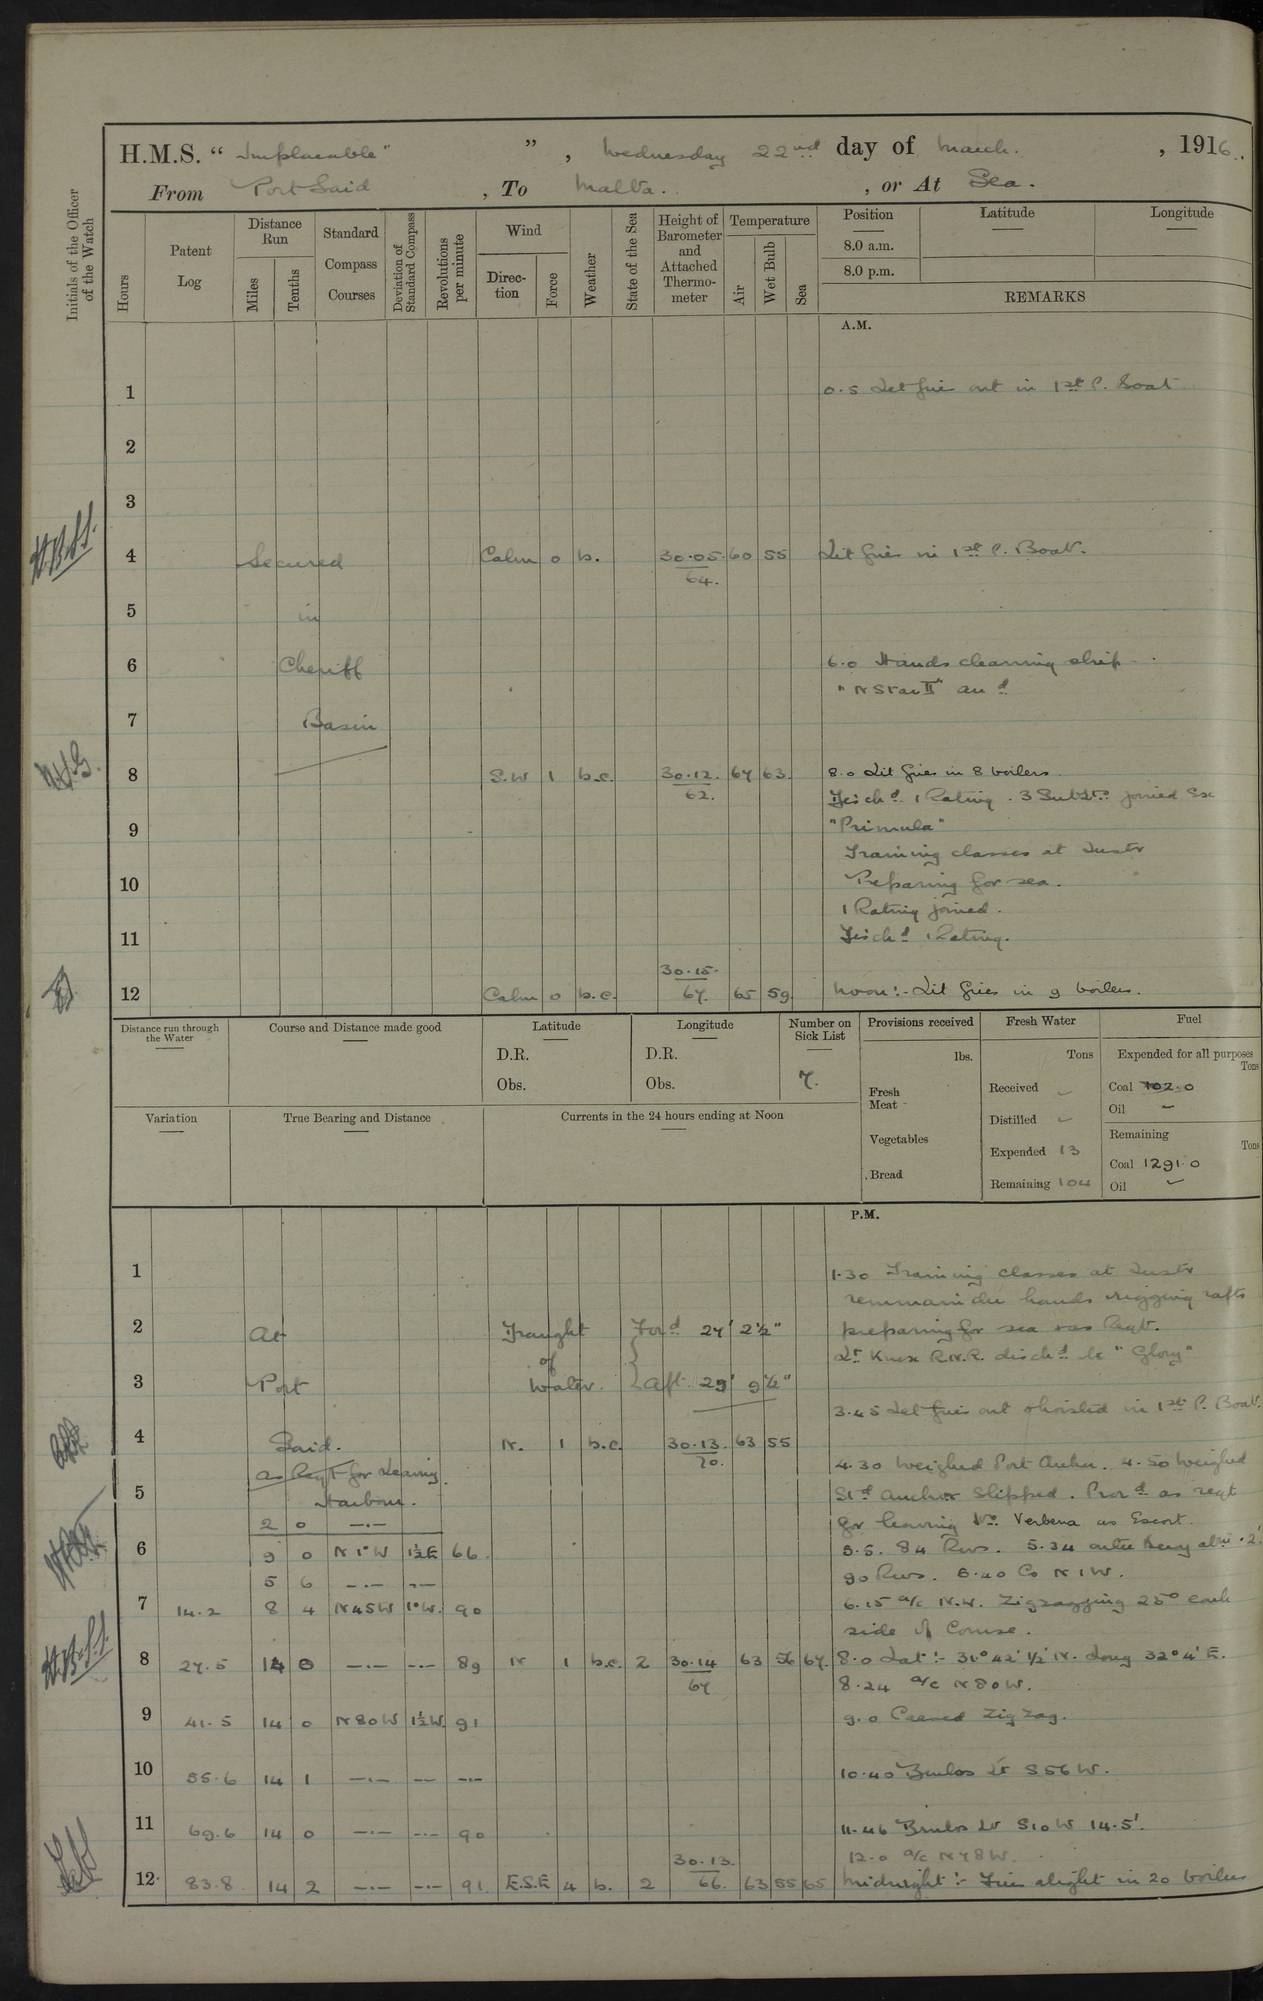 H.M.S. " Implacable " , Wednesday 22nd day of March. , 1916.
From Port Said , To Malta. , or At Sea.
Initials of the Officer of the Watch
Hours
Patent Log
Distance Run
Miles
Tenths
Standard Compass Courses
Deviation of Standard Compass
Revolutions per minute
Wind
Direction
Force
Weather
State of the Sea
Height of Barometer and Attached Thermometer
Temperature
Air
Wet Bulb
Sea
Position
8.0 a.m.
8.0 p.m.
Latitude
Longitude
REMARKS
A.M.
1 0.5 Let fire out in 1st P. Boat
2
3
4 Secured Calm 0 b. 30.05 60 55 Lit fires in 1st P. Boat.
64.
5 in
6 Cheriff 6.0 Hands cleaning ship
"N Star II" arrd
7 Basin
8 S.W 1 b.c. 30.12. 67 63. 8.0 Lit fires in 8 boilers
62.
Disch'd 1 Rating. 3 SubLts joined Ex
9 "Primula"
Training classes at Instr
10 Preparing for sea.
1 Rating joined.
11 Disch'd 1 Rating.
30.15.
12 Calm 0 b.c. 67. 65 59 Noon:- Lit fires in 9 boilers.
Distance run through the Water
Course and Distance made good
Latitude
D.R.
Obs.
Longitude
D.R.
Obs.
Number on Sick List
7.
Provisions received
lbs.
Fresh Meat
Vegetables
Bread
Fresh Water
Tons
Received
Distilled
Expended 13
Remaining 104
Fuel
Expended for all purposes
Tons
Coal 102.0
Oil -
Remaining
Tons
Coal 1291.0
Oil
Variation
True Bearing and Distance
Currents in the 24 hours ending at Noon
P.M.
1 1.30 Training classes at Instr
remainder hands rigging rafts
2 At Draught Ford 27' 2½" preparing for sea as Reqt.
of Lt Knox R.N.R. disch'd to "Glory"
3 Port Water. Aft. 29' 9½"
3.45 Let fires out & hoisted in 1st P. Boat.
4 Said. N. 1 b.c. 30.13. 63 55
70.
as Reqt for Leaving 4.30 Weighed Port Anchr. 4.50 Weighed
5 Harbour. Std Anchor Slipped. Procd as reqt
2 0 —.— for leaving Verbena as Escort.
6 9 0 N 1° W 1½E 66 5.5. 84 Revs. 5.34
5 6 —.— -.- 90 Revs. Co N 1 W.
7 14.2 8 4 N45W 1°W. 90 6.15 a/c N.W. Zigzagging 25° each
side of Course.
8 27.5 14 0 —.— -.- 89 N 1 b.c. 2 30.14 63 56 67. 8.0 Lat:- 31° 42' ½ N. Long 32° 4' E.
67 8.24 a/c N80W.
9 41.5 14 0 N80W 1½W. 91 9.0 Ceased Zig Zag.
10 55.6 14 1 —.— -.- -.- 10.40 Brulos Lt S56W.
11 69.6 14 0 —.— -.- 90 11.46 Brulos Lt S10W 14.5'.
30.13. 12.0 a/c N78W.
12 83.8 14 2 —.— -.- 91 E.S.E 4 b. 2 66. 63 55 65 Midnight:- Fires alight in 20 boilers